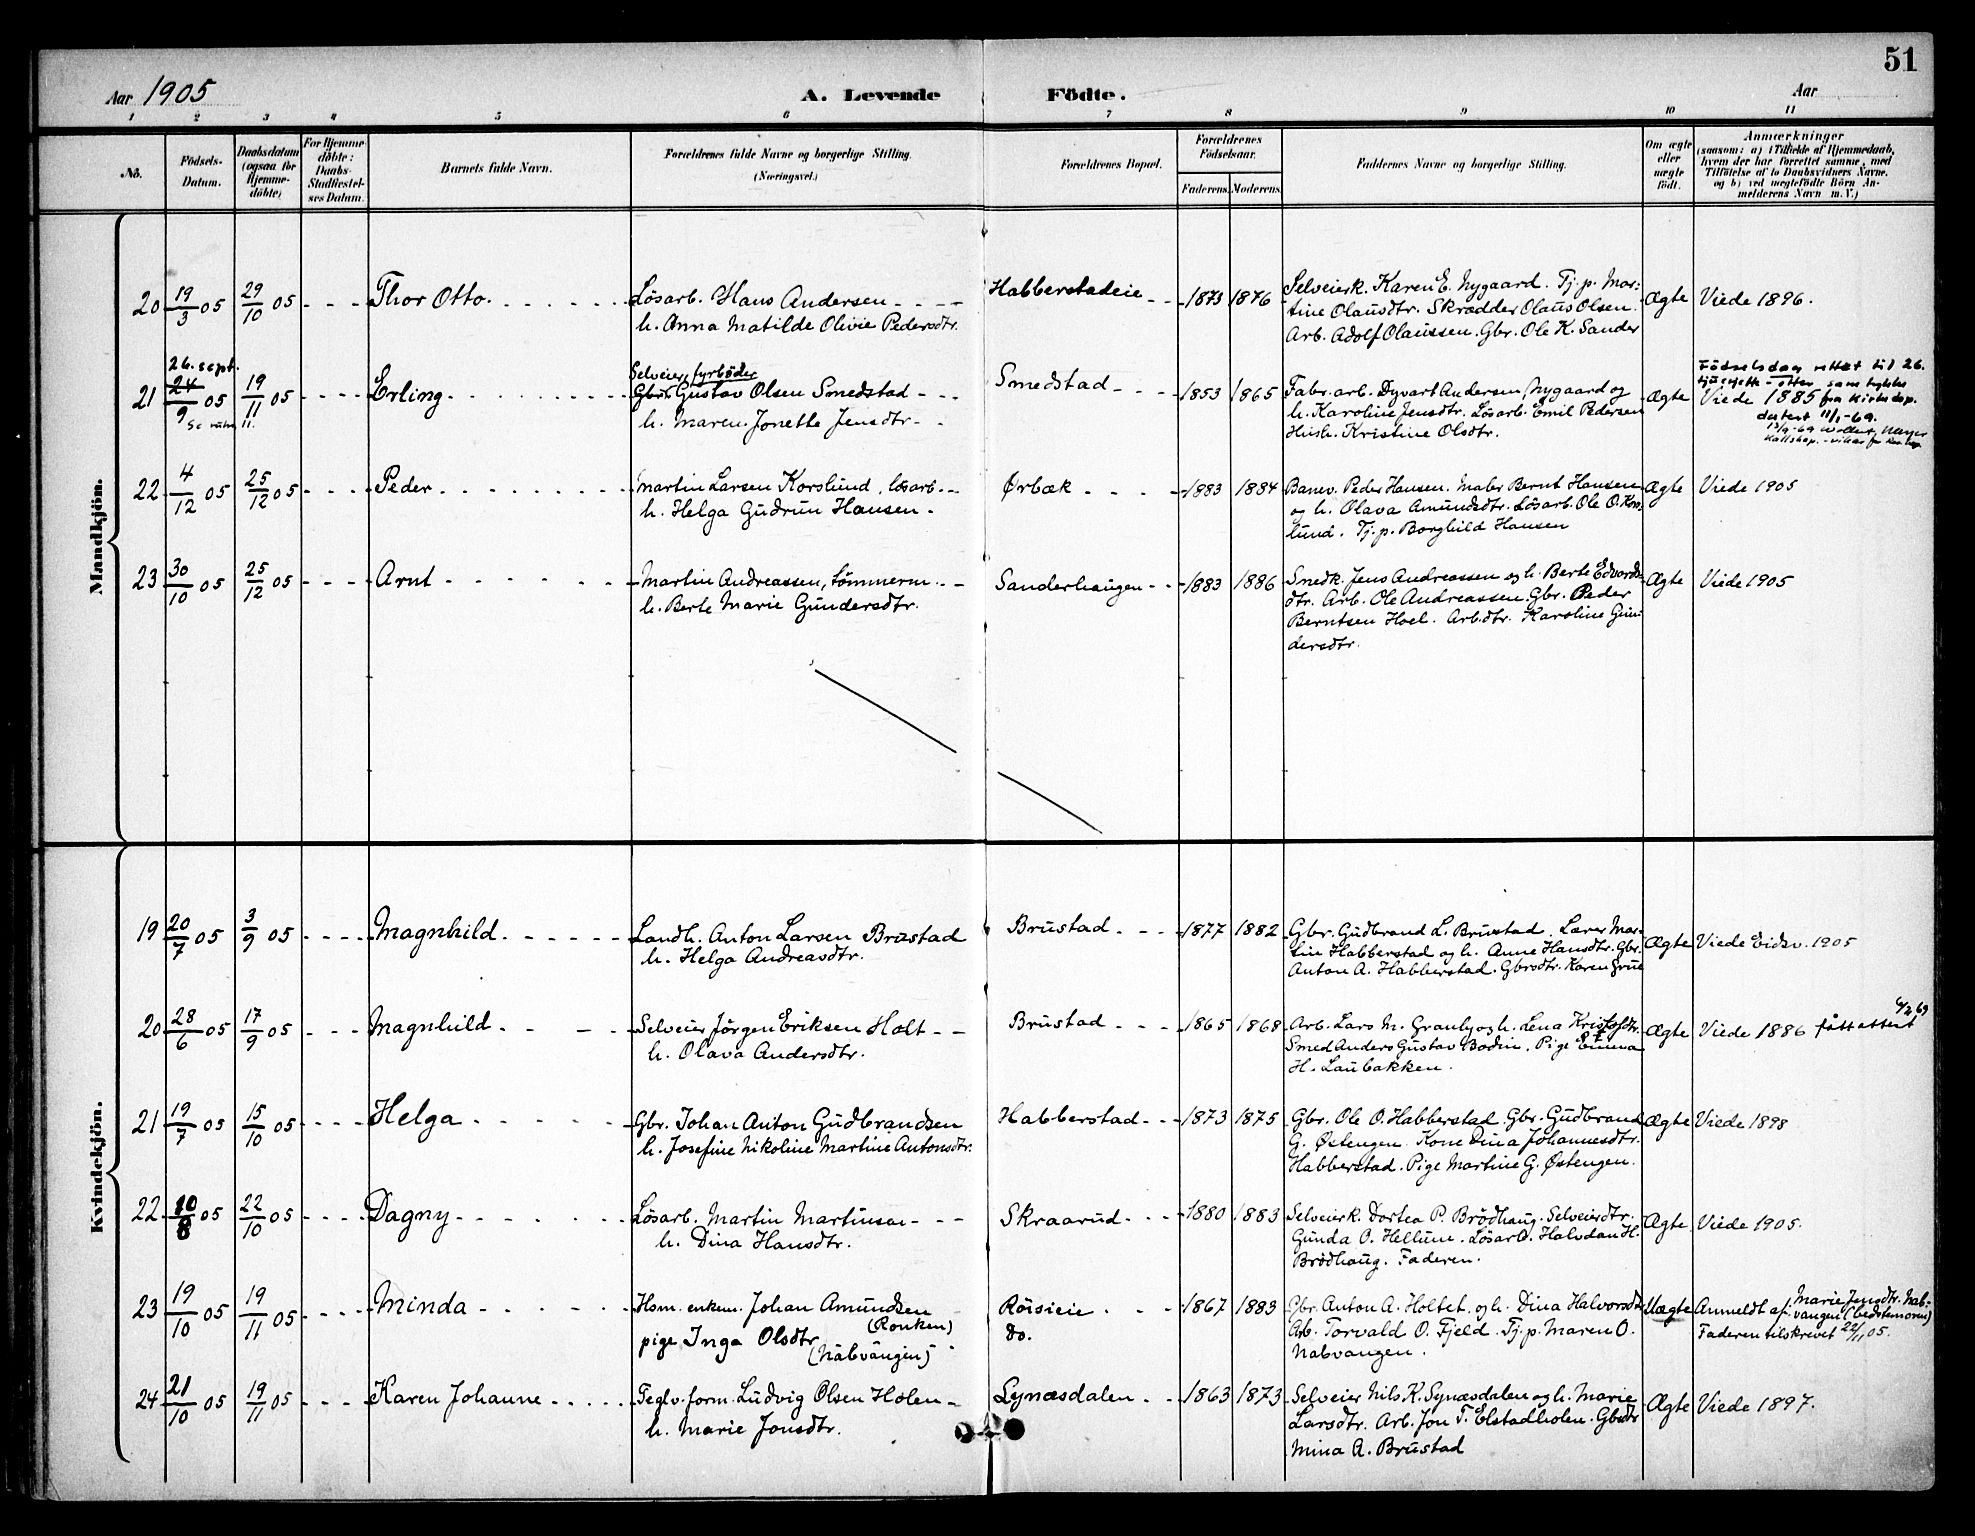 51
Aar 1905
A. Levende Födte.
Aar
1 2 3 4 5 6 7 8 9 10 11
No.
Födsels-
Datum.
Daabsdatum
(ogsaa for
Hjemme-
döbte)
For Hjemme-
döbte:
Daabs-
Stadfæstel-
ses Datum.
Barnets fulde Navn.
Forældrenes fulde Navne og borgerlige Stilling.
(Næringsvei.)
Forældrenes Bopæl.
Forældrenes
Födselsaar.
Faderens. Moderens.
Faddernes Navne og borgerlige Stilling.
Om ægte
eller
uægte
födt.
Anmærkninger
(saasom: a) i Tilfælde af Hjemmedaab,
hvem der har forrettet samme, med
Tilföielse af to Daabsvidners Navne,
og b) ved uægtefödte Börn An-
melderens Navn m. V.)
Mandkjön.
20 19/3 05 29/10 05 Thor Otto. Lösarb. Hans Andersen Habberstadeie 1873 1876 Selveierk. Karen E. Nygaard. Tj. p. Mar- Ægte Viede 1896.
h. Anna Matilde Olivie Pedersdtr. tine Olausdtr. Skrædder Olaus Olsen.
Arb. Adolf Olaussen. Gbr. Ole K. Sander
26. sept. Selveier, fyrböder Födselsdag rettet til 26.
21 24/9 05 19/11 05 Erling Gbr. Gustav Olsen Smedstad Smedstad 1853 1865 Fabr. arb. Dyvart Andersen, Nygaard og Ægte Viede 1885 fra Kirkedep.
h. Maren Jonette Jensdtr. h. Karoline Jensdtr. Lösarb. Emil Pedersen datert 11/1-69.
Hush. Kristine Olsdtr.
22 4/12 05 25/12 05 Peder Martin Larsen Korslund, lösarb. Ørbæk 1883 1884 Banev. Peder Hansen. Maler Bernt Hansen Ægte Viede 1905
h. Helga Gudrun Hansen og h. Olava Amundsdtr. Lösarb. Ole O. Kors-
lund. Tj. p. Borghild Hansen
23 30/10 05 25/12 05 Arnt Martin Andreassen, tömmerm. Sanderhaugen 1883 1886 Smedk. Jens Andreassen og h. Berte Edvards- Ægte Viede 1905
h. Berte Marie Gundersdtr. dtr. Arb. Ole Andreassen. Gbr. Peder
Berntsen Hoel. Arb.dtr. Karoline Gun-
dersdtr.
Kvindekjön.
19 20/7 05 3/9 05 Magnhild Landh. Anton Larsen Brustad Brustad 1877 1882 Gbr. Gudbrand L. Brustad. Lærer Mar- Ægte Viede Eidsv. 1905
h. Helga Andreasdtr. tin Habberstad og h. Anne Hansdtr. Gbr.
Anton A. Habberstad. Gbrsdtr. Karen Grue
20 28/6 05 17/9 05 Magnhild Selveier Jörgen Eriksen Holt Brustad 1865 1868 Arb. Lars M. Granly og h. Lena Kristofsdtr. Ægte Viede 1886 fått attest 6/2 69
h. Olava Andersdtr. Smed Anders Gustav Bodin. Pige Emma
H. Laubakken.
21 19/7 05 15/10 05 Helga Gbr. Johan Anton Gudbrandsen Habberstad 1873 1875 Gbr. Ole O. Habberstad. Gbr. Gudbrand Ægte Viede 1898
h. Josefine Nikoline Martine Antonsdtr. G. Østengen. Kone Dina Johannesdtr.
Habberstad. Pige Martine G. Østengen.
22 10/8 05 22/10 05 Dagny Lösarb. Martin Martinsen Skraarud 1880 1883 Selveierk. Dortea P. Brödhaug. Selveierdtr. Ægte Viede 1905.
h. Dina Hansdtr. Gunda O. Hellum. Lösarb. Halvdan H.
Brödhaug. Faderen.
23 19/10 05 19/11 05 Minda Hsm. enkem. Johan Amundsen Röisieie 1867 1883 Gbr. Anton A. Holtet og h. Dina Halvorsdtr. Uægte Anmeldt af Marie Jensdtr. Nab-
(Rønken) vangen (bedstemoren)
pige Inga Olsdtr. do. Arb. Torvald O. Fjeld. Tj. p. Maren O. Faderen tilskrevet 22/11 05.
(Nabvangen) Nabvangen.
24 21/10 05 19/11 05 Karen Johanne Teglv. form. Ludvig Olsen Holen Lynæsdalen 1863 1873 Selveier Nils K. Synæsdalen og h. Marie Ægte Viede 1897.
h. Marie Jonsdtr. Larsdtr. Arb. Jon T. Elstadholen. Gbrsdtr.
Mina A. Brustad